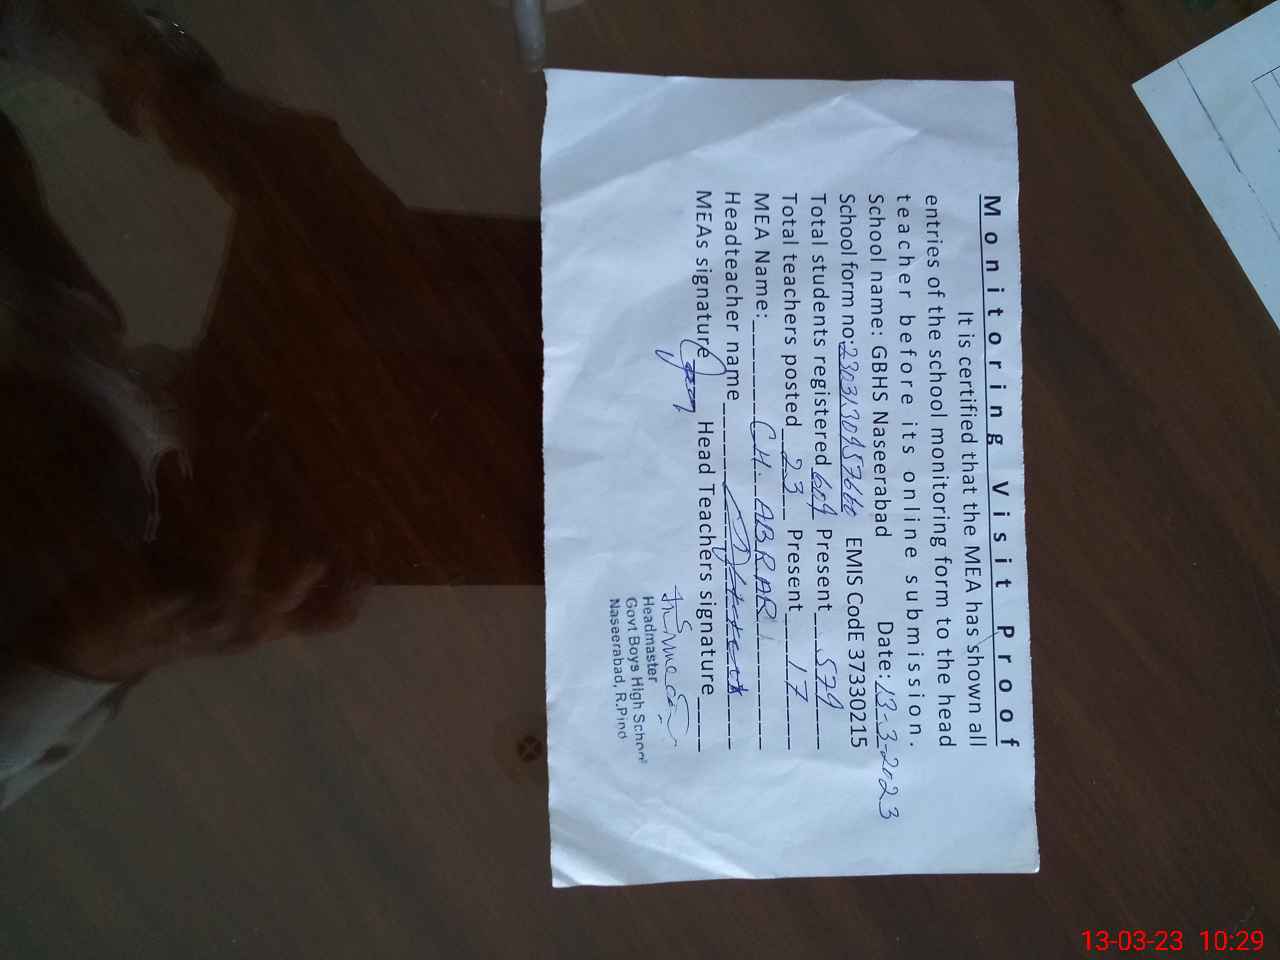 Monitoring Visit Proof
It is certified that the MEA has shown all
entries of the school monitoring form to the head
teacher before its online submission.
School name: GBHS Naseerabad Date: 13-3-2023
School form no: EMIS CodE 37330215
Total students registered 604 Present 579
Total teachers posted 23 Present 17
MEA Name: CH. ABRAR
Headteacher name
MEAs signature Head Teachers signature
Headmaster
Govt Boys High School
Naseerabad, R.Pind
13-03-23 10:29